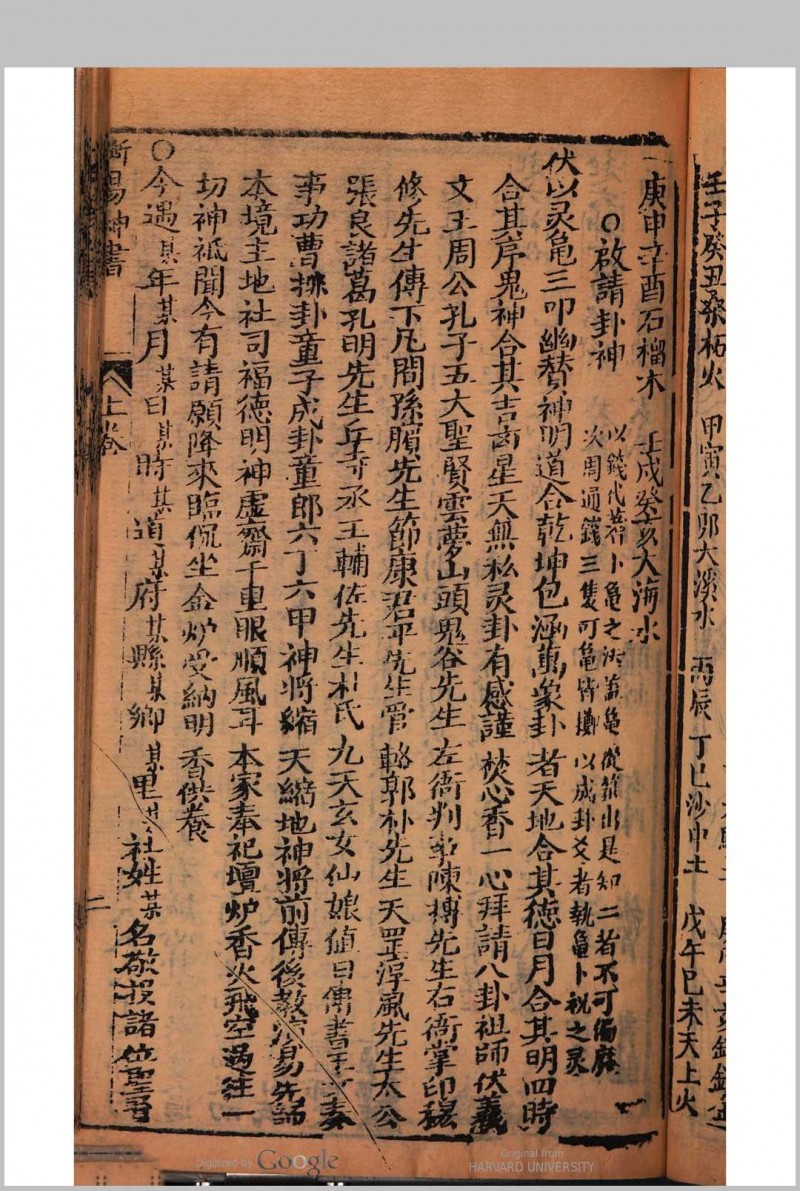 壬子癸丑桑柘火　甲寅乙卯大溪水　丙辰丁巳沙中土　戊午己未天上火
庚申辛酉石榴木　壬戌癸亥大海水
○啟請卦神
以錢代蓍卜龜之法蓋龜從筮出是知二者不可偏廢
次周通錢三隻可龜皆擲以成卦爻者執龜卜祝之灵
伏以灵亀三叩幽賛神明道合乾坤包涵萬象卦者天地合其徳日月合其明四時
合其序鬼神合其吉凶星天無私灵卦有感謹焚心香一心拜請八卦祖師伏羲
文王周公孔子五大聖賢雲夢山頭鬼谷先生左衙判事陳摶先生右衙掌印
修先生傳下凡間孫臏先生節康君平先生管輅郭朴先生天罡淳風先生太公
張良諸葛孔明先生丘寺丞王輔佐先生杜氏九天玄女仙娘值日傳書玉童奏
事功曹排卦童子成卦童郎六丁六甲神將縮天縮地神將前傳後教演易先師
本境主地社司福德明神虛齋千里眼順風耳本家奉祀壇炉香火飛空過往一
切神祇聞今有請願降來臨侃坐金炉受納明香供養
○今遇某年某月某日某時某道某府某縣某鄉某里某社姓某名敬投諸位聖君
斷易神書　上卷　二
Digitized by Google
Original from
HARVARD UNIVERSITY